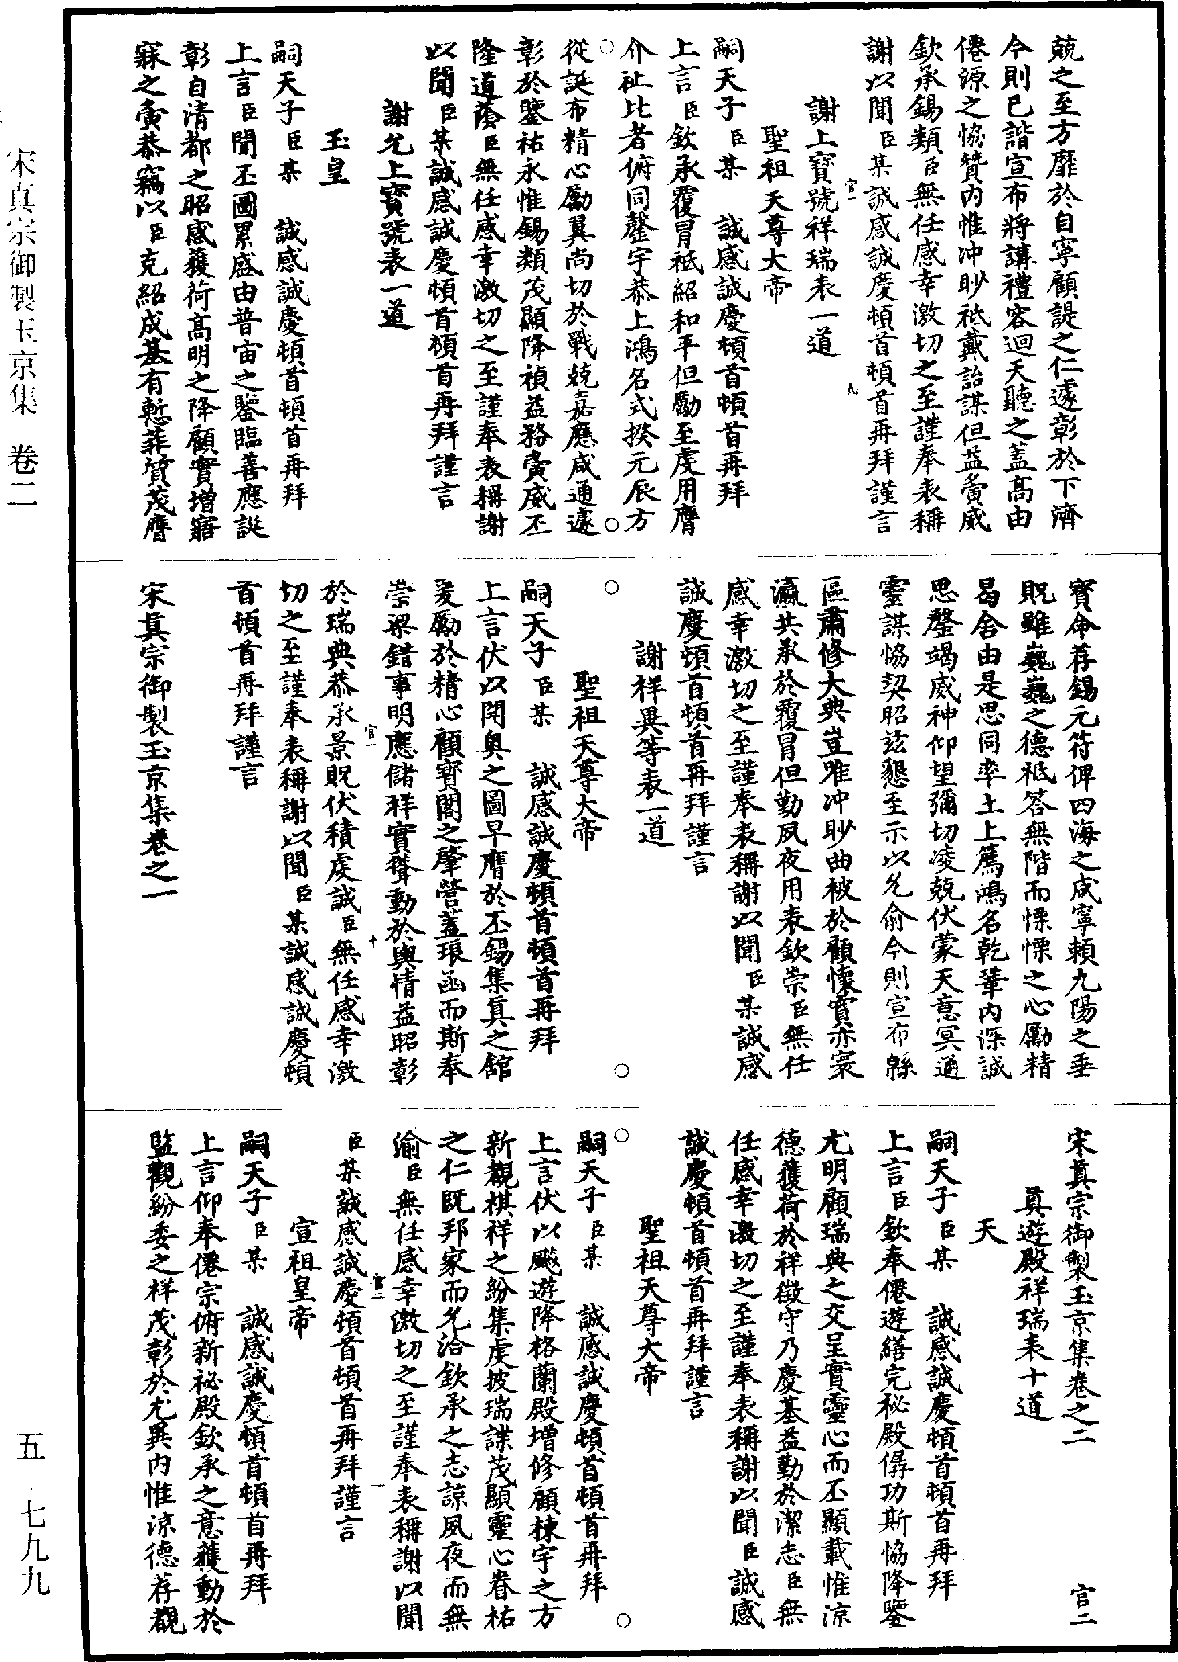 兢之至方靡於自寧顧諟之仁遽彰於下濟
今則已諧宣布將講禮容迴天聽之蓋高由
僊源之協贊內惟沖眇祗戴詒謀但益夤威
欽承錫類臣無任感幸激切之至謹奉表稱
謝以聞臣某誠感誠慶頓首頓首再拜謹言
官一
九
謝上寶號祥瑞表一道
聖祖天尊大帝
嗣天子臣某 誠感誠慶頓首頓首再拜
上言臣欽承覆冒祗紹和平但勵至虔用膺
介祉比者俯同罄宇恭上鴻名式揆元辰方
從誕布精心勵翼尚切於戰兢嘉應咸通遽
彰於鑒祐永惟錫類茂顯降禎益務夤威丕
隆道蔭臣無任感幸激切之至謹奉表稱謝
以聞臣某誠感誠慶頓首頓首再拜謹言
謝允上寶號表一道
玉皇
嗣天子臣某 誠感誠慶頓首頓首再拜
上言臣聞丕圖累盛由普宙之鑒臨善應誕
彰自清都之昭感獲荷高明之降顧實增寤
寐之夤恭竊以臣克紹成基有慙菲質茂膺
寶命荐錫元符俾四海之咸寧賴九陽之垂
貺雖巍巍之德祗答無階而慄慄之心勵精
曷舍由是思同率土上薦鴻名乾鞏內深誠
思罄竭威神仰望彌切凌兢伏蒙天意冥通
靈謀協契昭玆懇至示以允俞今則宣布緜
區肅修大典豈惟沖眇曲被於顧懷實亦寰
瀛共承於覆冒但勤夙夜用表欽崇臣無任
感幸激切之至謹奉表稱謝以聞臣某誠感
誠慶頓首頓首再拜謹言
謝祥異等表一道
聖祖天尊大帝
嗣天子臣某 誠感誠慶頓首頓首再拜
上言伏以開奧之圖早膺於丕錫集真之館
爰勵於精心顧寶閣之肇營蓋琅函而斯奉
崇梁錯事明應儲祥實聳動於輿情益昭彰
官一
十
於瑞典恭承景貺伏積虔誠臣無任感幸激
切之至謹奉表稱謝以聞臣某誠感誠慶頓
首頓首再拜謹言
宋真宗御製玉京集卷之一
宋真宗御製玉京集卷之二
官二
真遊殿祥瑞表十道
天
嗣天子臣某 誠感誠慶頓首頓首再拜
上言臣欽奉僊遊繕完祕殿僝功斯協降鑒
尤明顧瑞典之交呈實靈心而丕顯載惟涼
德獲荷於祥徵守乃慶基益勤於潔志臣無
任感幸激切之至謹奉表稱謝以聞臣誠感
誠慶頓首頓首再拜謹言
聖祖天尊大帝
嗣天子臣某 誠感誠慶頓首頓首再拜
上言伏以飈遊降格蘭殿增修顧棟宇之方
新觀棋祥之紛集虔披瑞諜茂顯靈心眷祐
之仁既邦家而允洽欽承之志諒夙夜而無
渝臣無任感幸激切之至謹奉表稱謝以聞
官二
一
臣某誠感誠慶頓首頓首再拜謹言
宣祖皇帝
嗣天子臣某 誠感誠慶頓首頓首再拜
上言仰奉僊宗俯新祕殿欽承之意獲動於
監觀紛委之祥茂彰於尤異內惟涼德荐觀
宋真宗御製玉京集 卷二
五·七九九